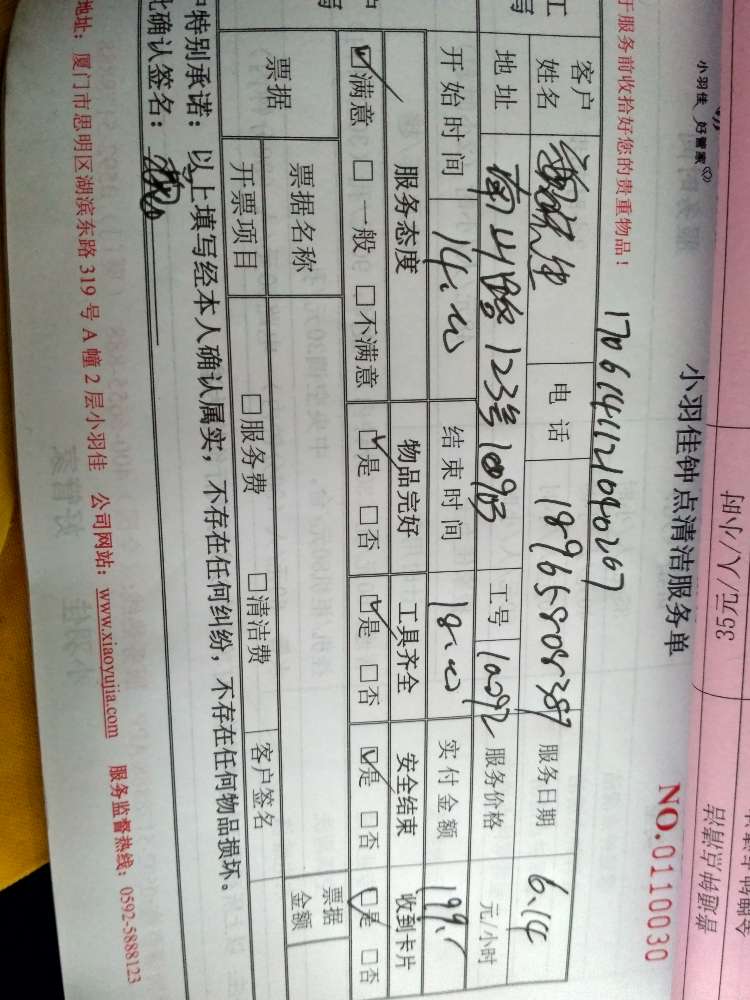 小羽佳 好管家
小羽佳钟点清洁服务单
NO.0110030
35元/人/小时
普通钟点清洁
于服务前收拾好您的贵重物品！
1706141121040267
客户姓名 电话 18965808389 服务日期 6.14
地址 工号 服务价格 元/小时
开始时间 14.00 结束时间 18.00 实付金额
服务态度 物品完好 工具齐全 安全结束 收到卡片
☑满意 □一般 □不满意 ☑是 □否 ☑是 □否 ☑是 □否 ☑是 □否
票据 票据名称 票据金额
开票项目 □服务费 □清洁费 客户签名
特别承诺：以上填写经本人确认属实，不存在任何纠纷，不存在任何物品损坏。
确认签名：
地址：厦门市思明区湖滨东路319号A幢2层小羽佳 公司网站：www.xiaoyujia.com 服务监督热线：0592-5888123